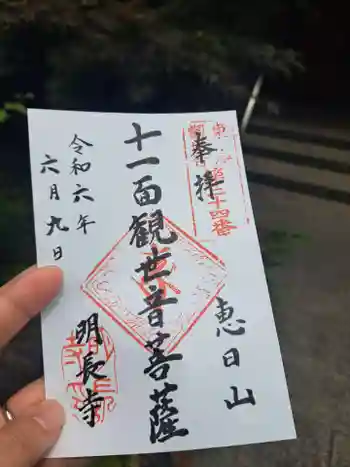 奉拝
恵日山
十一面観世音菩薩
明長寺
令和六年
六月九日